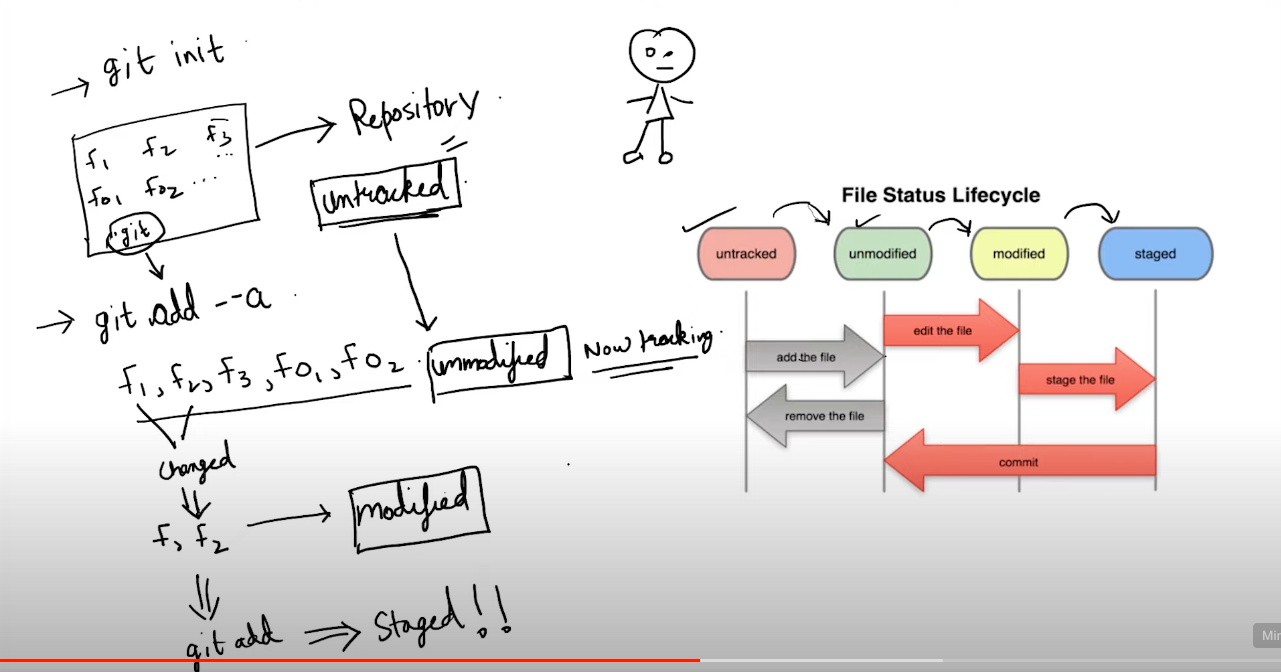 → git init
f1 f2 f3 ...
f01 f02 ...
.git
→ Repository
untracked
→ git add --a
f1, f2, f3, f01, f02
unmodified
Now tracking
changed
f1 f2 → modified
git add ⇒ Staged!!
File Status Lifecycle
untracked unmodified modified staged
edit the file
add the file
stage the file
remove the file
commit